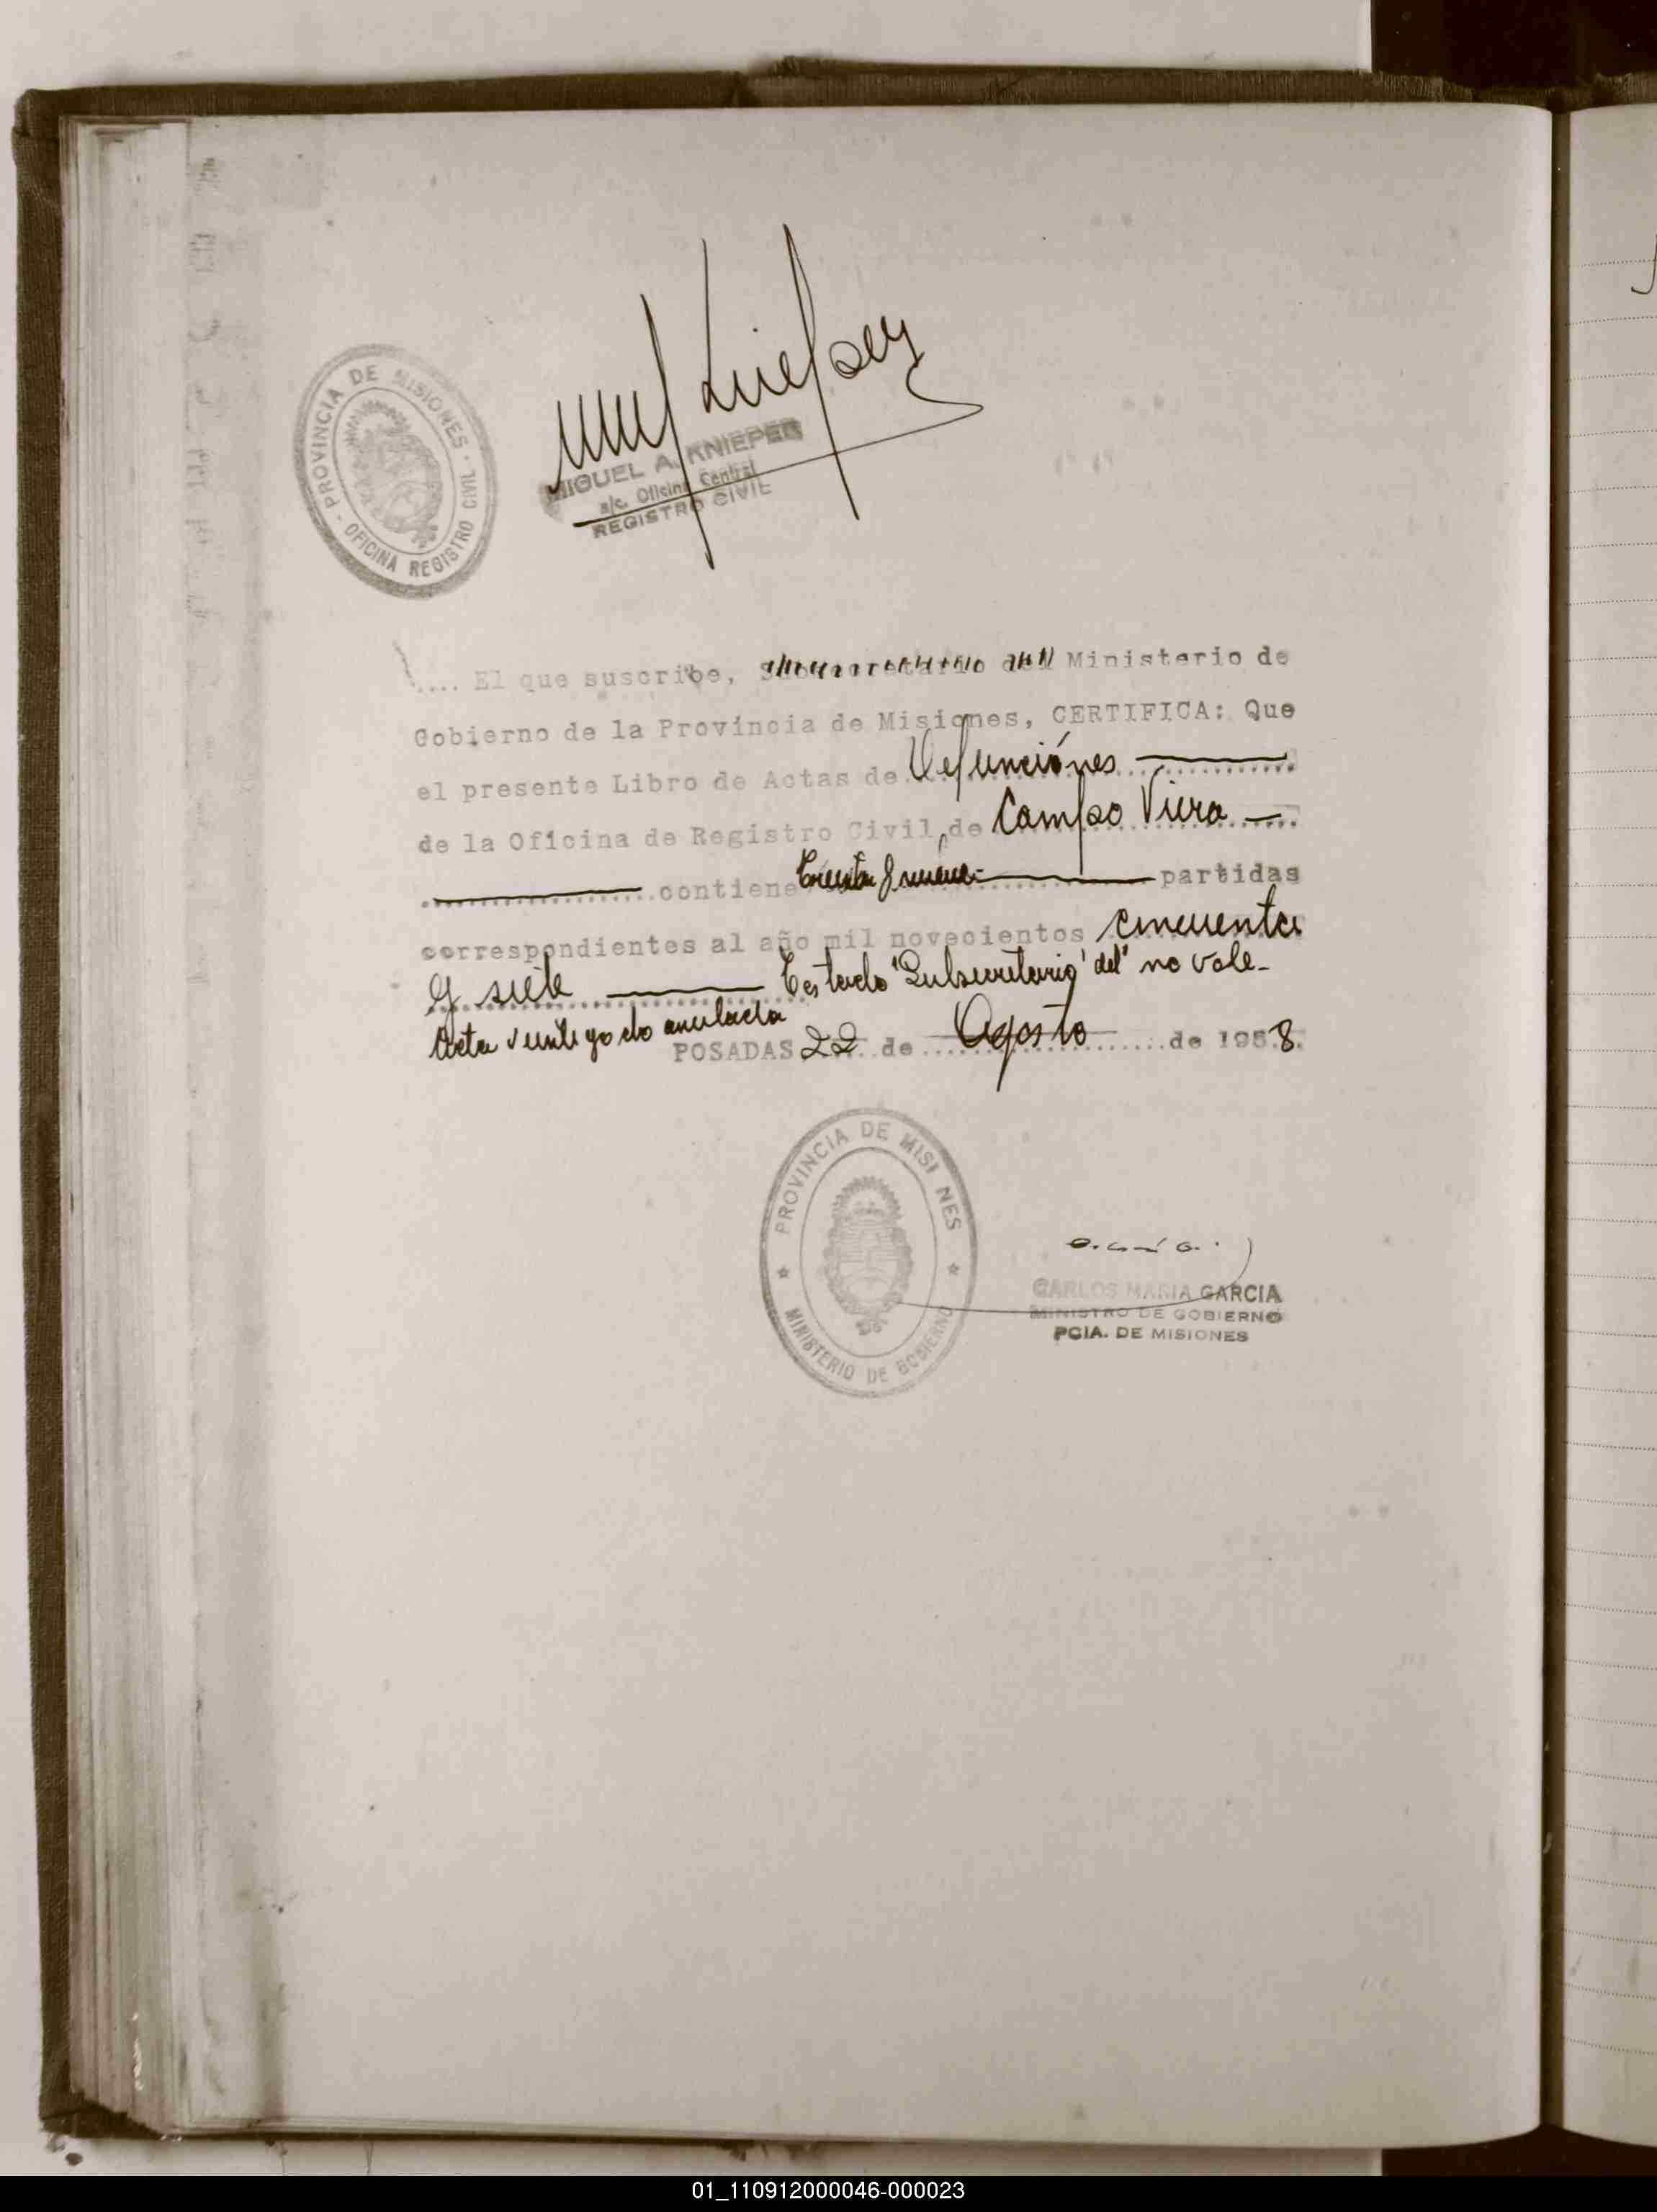 PROVINCIA DE MISIONES
OFICINA REGISTRO CIVIL
MIGUEL A. KNIEPER
a/c. Oficina Central
REGISTRO CIVIL
.... El que suscribe, Subsecretario del Ministerio de
Gobierno de la Provincia de Misiones, CERTIFICA: Que
el presente Libro de Actas de Defunciónes
de la Oficina de Registro Civil de Campo Viera
contiene treinta y nueve partidas
correspondientes al año mil novecientos cincuenta
y siete Testado "Subsecretario" "del" no vale
Acta veinti y do anulada
POSADAS 22 de Agosto de 1958.
PROVINCIA DE MISI NES
MINISTERIO DE GOBIERNO
CARLOS MARIA GARCIA
MINISTRO DE GOBIERNO
PCIA. DE MISIONES
01_110912000046-000023